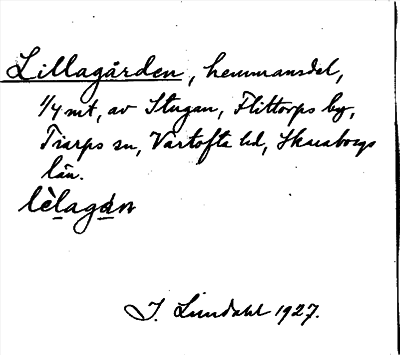 Lillagården, hemmansdel,
1/4 mt, av Stugan, Flittorps by,
Tiarps sn, Vartofta hd, Skaraborgs
län.
lèlagán
I. Lundahl 1927.